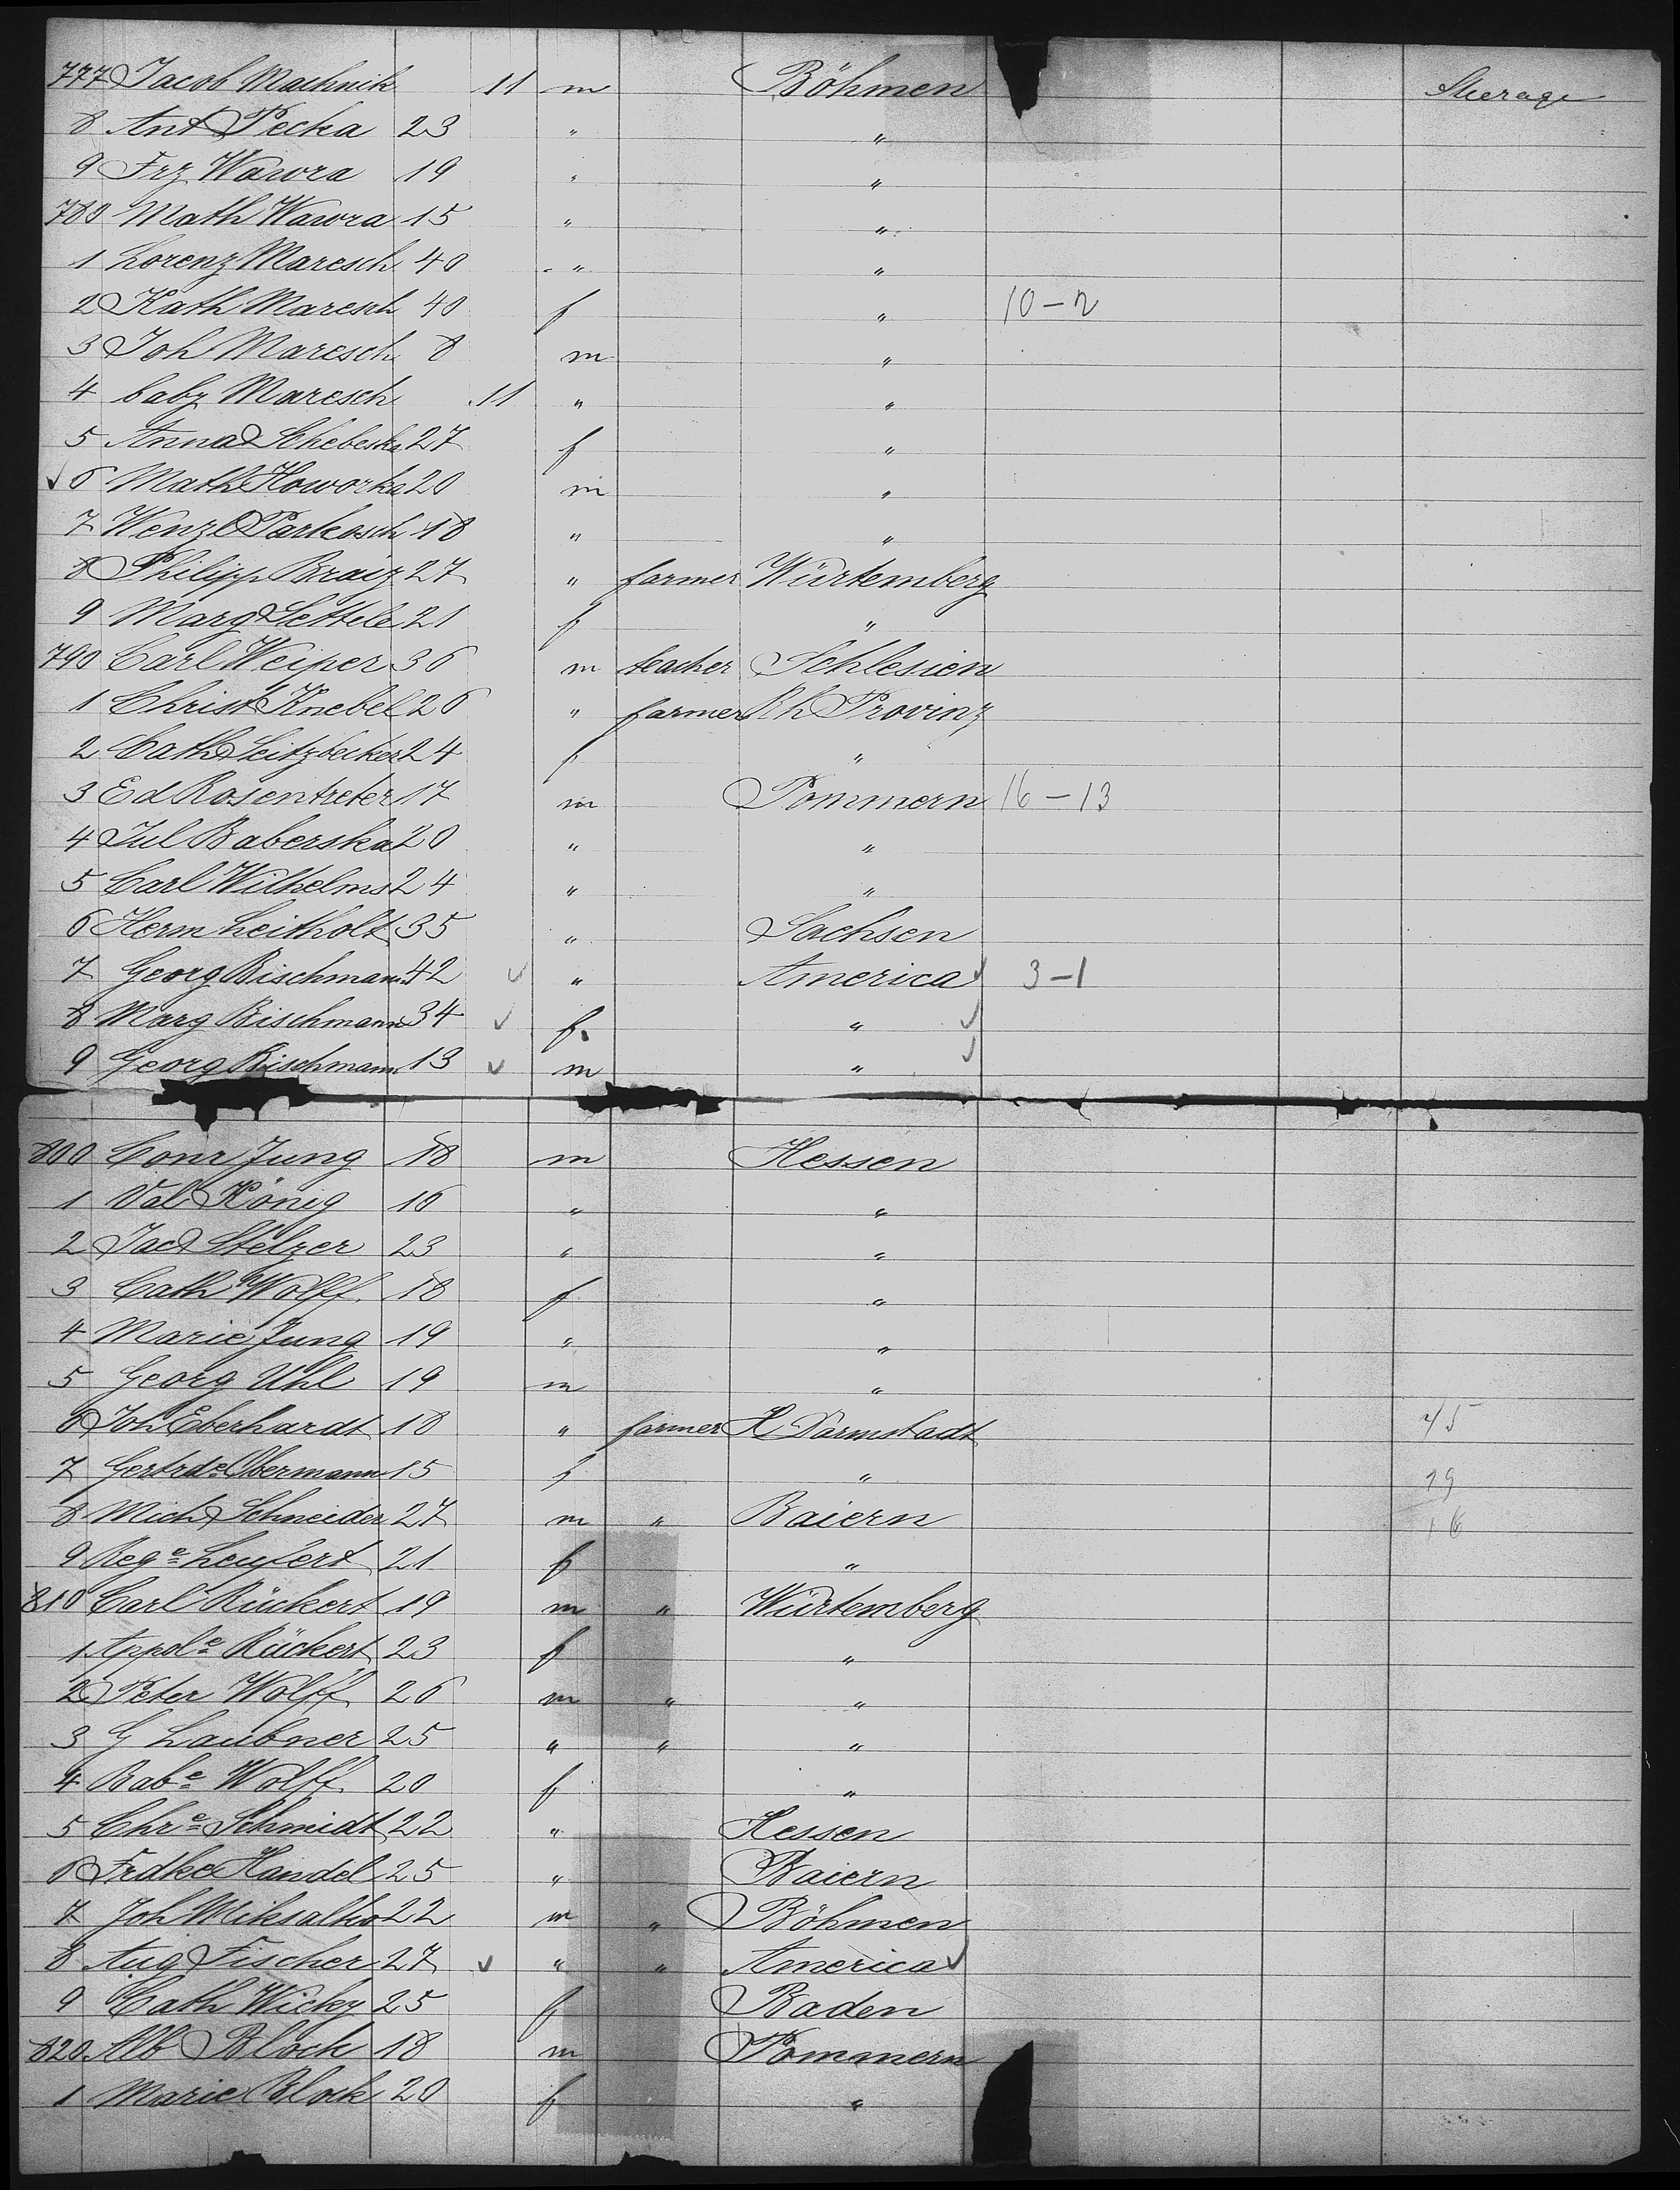 777 Jacob Machnik 11 m Böhmen Steerage
8 Ant Pecka 23 " "
9 Frz Wawra 19 " "
780 Math Wawra 15 " "
1 Lorenz Maresch 40 " "
2 Kath Maresch 40 f " 10-2
3 Joh Maresch 8 m "
4 baby Maresch 11 " "
5 Anna Schebeska 27 f "
6 Math Howorka 20 m "
7 Wenzl Parkosch 18 " "
8 Philipp Braiz 27 " farmer Würtemberg
9 Marg Settele 21 f "
790 Carl Weiper 36 m teacher Schlesien
1 Christ Knebel 26 " farmer Rh Provinz
2 Cath Seitzbecker 24 f "
3 Ed Rosentreter 17 m Pommern 16-13
4 Jul Baberska 20 " "
5 Carl Wilhelms 24 " "
6 Herm Leitholt 35 " Sachsen
7 Georg Bischmann 42 " America 3-1
8 Marg Bischmann 34 f. "
9 Georg Bischmann 13 m "
800 Conr Jung 18 m Hessen
1 Val König 16 " "
2 Jac Stelzer 23 " "
3 Cath Wolff 18 f "
4 Marie Jung 19 " "
5 Georg Uhl 19 m "
6 Joh Eberhardt 18 " farmer H Darmstadt
7 Gertrde Obermann 15 f " 19
8 Mich Schneider 27 m " Baiern 16
9 Rege Leufert 21 f "
810 Carl Rückert 19 m " Würtemberg
1 Appole Rückert 23 f "
2 Peter Wolff 26 m " "
3 G Laubner 25 " " "
4 Babe Wolff 20 f "
5 Chre Schmidt 22 " Hessen
6 Fredke Handel 25 " Baiern
7 Joh Miksalko 22 m " Böhmen
8 Aug Fischer 27 " " America
9 Cath Wicky 25 f Baden
820 Alb Block 18 m Pommern
1 Marie Block 20 f "